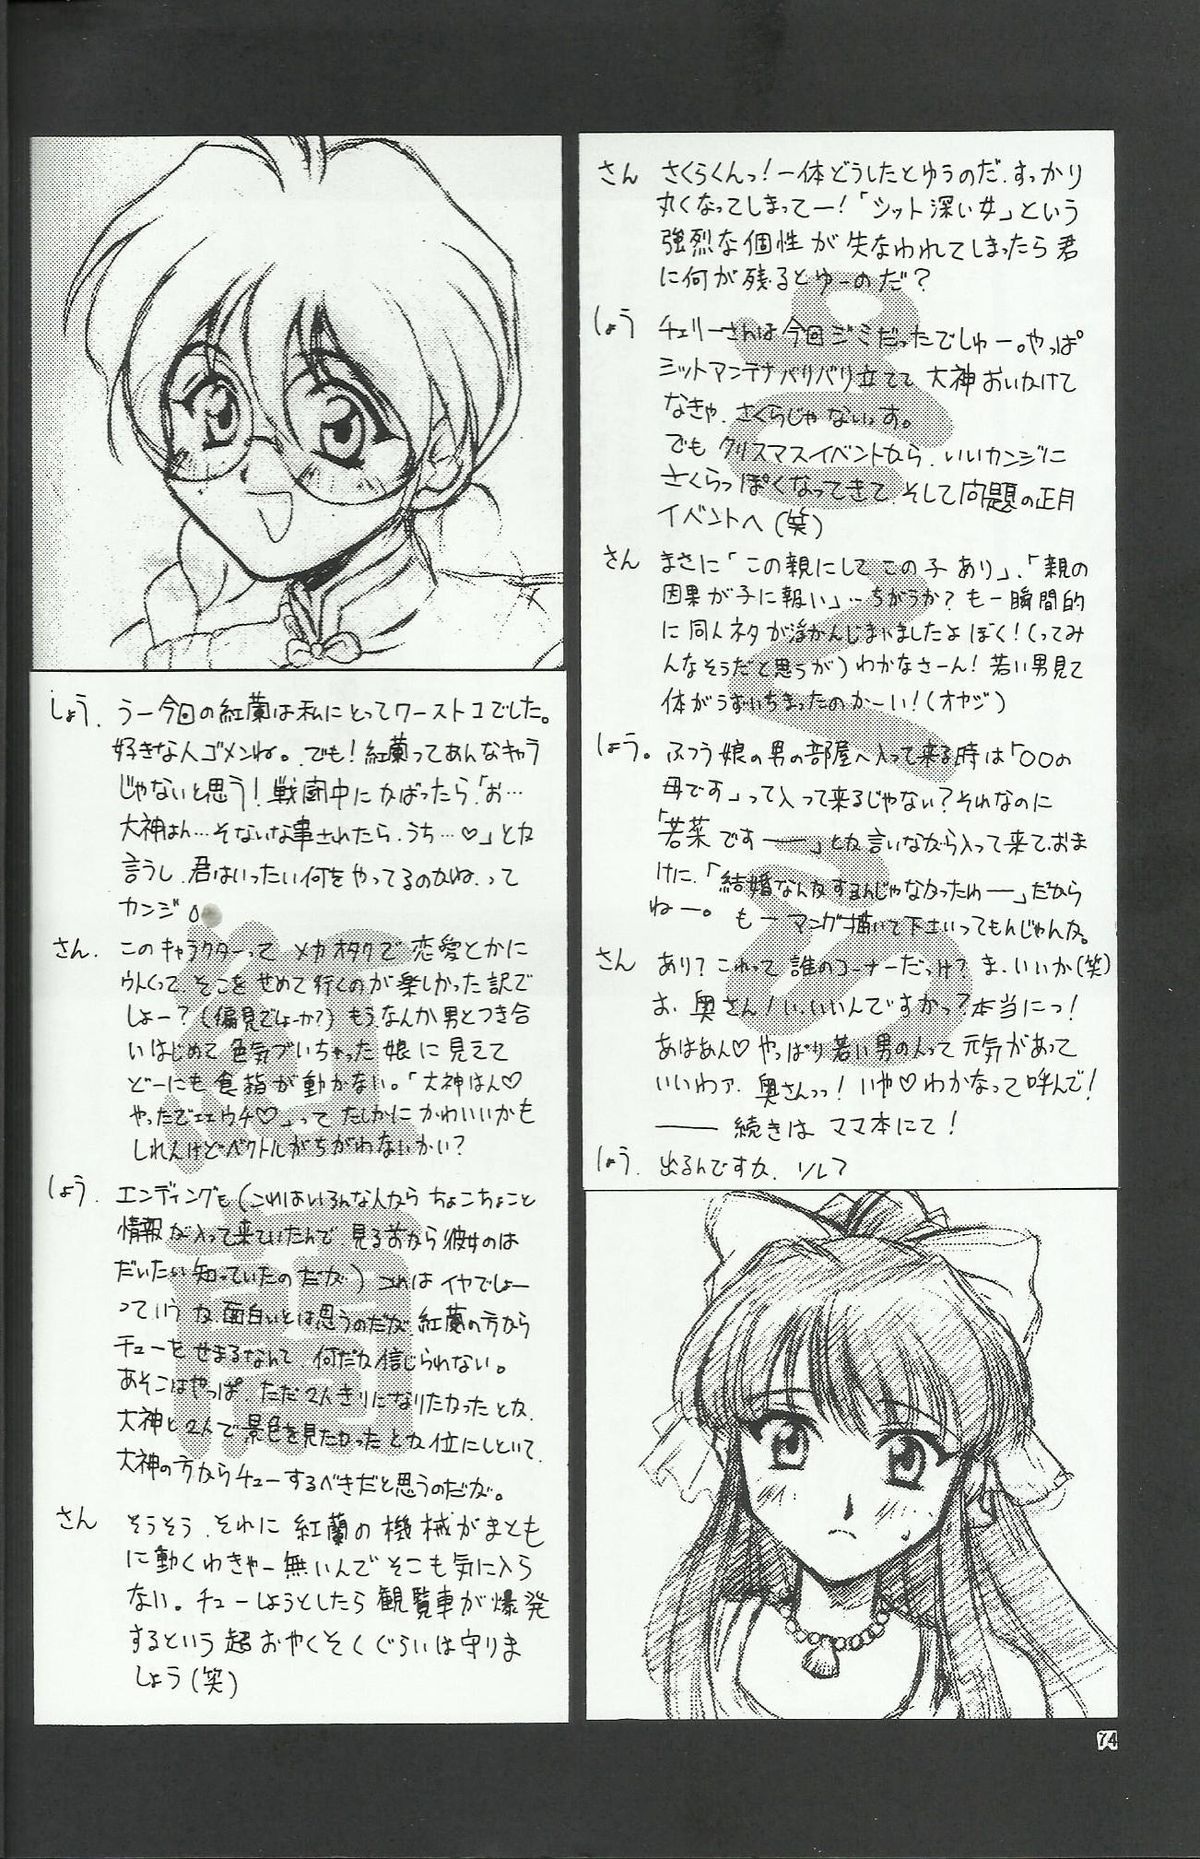 さん さくらくんっ!一体どうしたとゆうのだ、すっかり
丸くなってしまってー!「シット深い女」という
強烈な個性が失なわれてしまったら君
に何が残るとゆーのだ?
しょう チェリーさんは今回ジミだったでしゅー。やっぱ
シットアンテナバリバリ立てて大神おいかけて
なきゃ、さくらじゃないっす。
でもクリスマスイベントから、いいカンジに
さくらっぽくなってきて、そして問題の正月
イベントへ(笑)
さん まさに「この親にしてこの子あり」、「親の
因果が子に報い」…ちがうか?もー瞬間的
に同人ネタが浮かんじまいましたよぼく!(ってみ
んなそうだと思うが)わかなさーん!若い男見て
体がうずいちまったのかーい!(オヤジ)
しょう。 ふつう娘の男の部屋へ入って来る時は「○○の
母です」って入って来るじゃない?それなのに
「若菜ですー」とか言いながら入って来て、おま
けに、「結婚なんかするんじゃなかったわー」だから
ねー。 もーマンガ描いて下さいってもんじゃんか。
さん あり?これって誰のコーナーだっけ?ま、いいか(笑)
お、奥さん!い、いいんですかっ?本当にっ!
あはあん♡やっぱり若い男の人って元気があって
いいわァ、奥さんっっ!いや♡わかなって呼んで!
―― 続きはママ本にて!
しょう、 出るんですか、ソレ?
しょう、 うー今回の紅蘭は私にとってワースト1でした。
好きな人ゴメンね。でも!紅蘭ってあんなキャラ
じゃないと思う!戦闘中にかばったら「お…
大神はん…そないな事されたら、うち…♡」とか
言うし、君はいったい何をやってるのかね、って
カンジ。
さん、 このキャラクターってメカオタクで恋愛とかに
ウトくって、そこをせめて行くのが楽しかった訳で
しょー?(偏見でしょーか?)もう、なんか男とつき合
いはじめて色気づいちゃった娘に見えて
どーにも食指が動かない。「大神はん♡
やったでエエウチ♡」ってたしかにかわいいかも
しれんけどベクトルがちがわないかい?
しょう、 エンディングも(これはいろんな人からちょこちょこと
情報が入って来ていたんで、見る前から彼女のは
だいたい知っていたのだが)これはイヤでしょー
っていうか、面白いとは思うのだが、紅蘭の方から
チューをせまるなんて、何だか信じられない。
あそこはやっぱ、ただ2人きりになりたかったとか、
大神と2人で景色を見たかったとか位にしといて、
大神の方からチューするべきだと思うのだが。
さん そうそう、それに紅蘭の機械がまとも
に動くわきゃー無いんでそこも気に入ら
ない。チューしようとしたら観覧車が爆発
するという超おやくそくぐらいは守りま
しょう(笑)
74